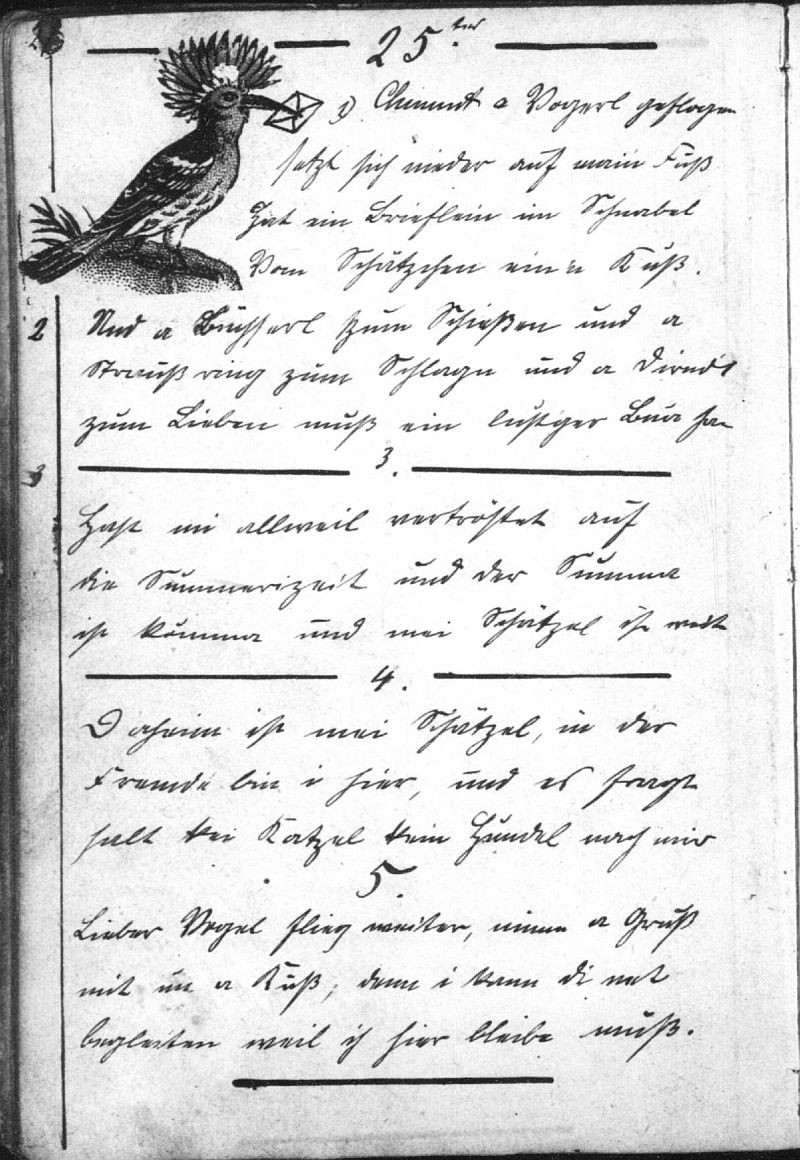 25.ter
1) Chimmt a Vogerl geflogen
setzt sich nieder auf main Fuß
Hat ein Brieflein im Schnabel
Vom Schätzchen einen Kuß.
2 Und a Büchserl zum Schießen und a
Straußring zum Schlagn und a Dirndl
zum Lieben muß ein lustger Bua ha
3 3.
Hast mi allweil vertröstet auf
die Summerizeit und der Summa
ist kömma und mei Schätzel ist weit
4.
Daheim ist mei Schätzel, in der
Fremde bin i hier, und es fragt
halt kei Katzel kein Hundel nach mir
5.
Lieber Vogel flieg weiter, nimm a Gruß
mit un a Kuß, denn i kann di net
begleiten weil ich hier bleibe muß.